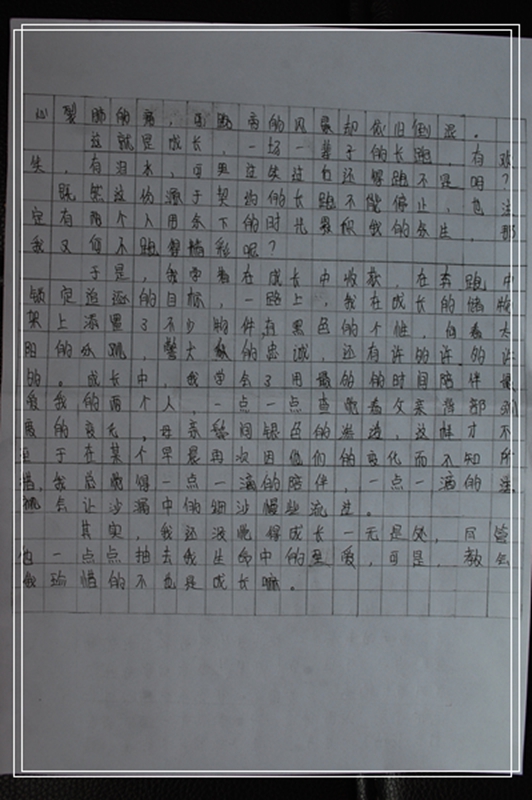 心裂肺的痛，可路旁的风景却依旧倒退。
这就是成长，一场一辈子的长跑，有欢
笑，有泪水，可要这失这白还得跑不是吗？
既然这份源于契约的长跑不能停止，也注
定有两个人用余下的时光累积我的余生，那
我又何不跑得精彩呢？
于是，我学着在成长中收获，在奔跑中
锁定追逐的目标，一路上，我在成长的储物
架上添置了不少物件，有黑色的个性，向着太
阳的乐观，警犬般的忠诚，还有许的许的许
的。成长中，我学会了用最的的时间陪伴最
爱我的两个人，一点一点查觉着父亲背部到
度的变无，母亲鬓间银色的渐边，这样才不
至于在某个早晨再次因他们的变化而不知所
措，我总觉得一点一滴的陪伴，一点一滴的
会让沙漏中的细沙慢些流逝。
其实，我还没觉得成长一无是处，尽管
也一点点抽去我生命中的至爱，可是，教会
我珍惜的不也是成长嘛。